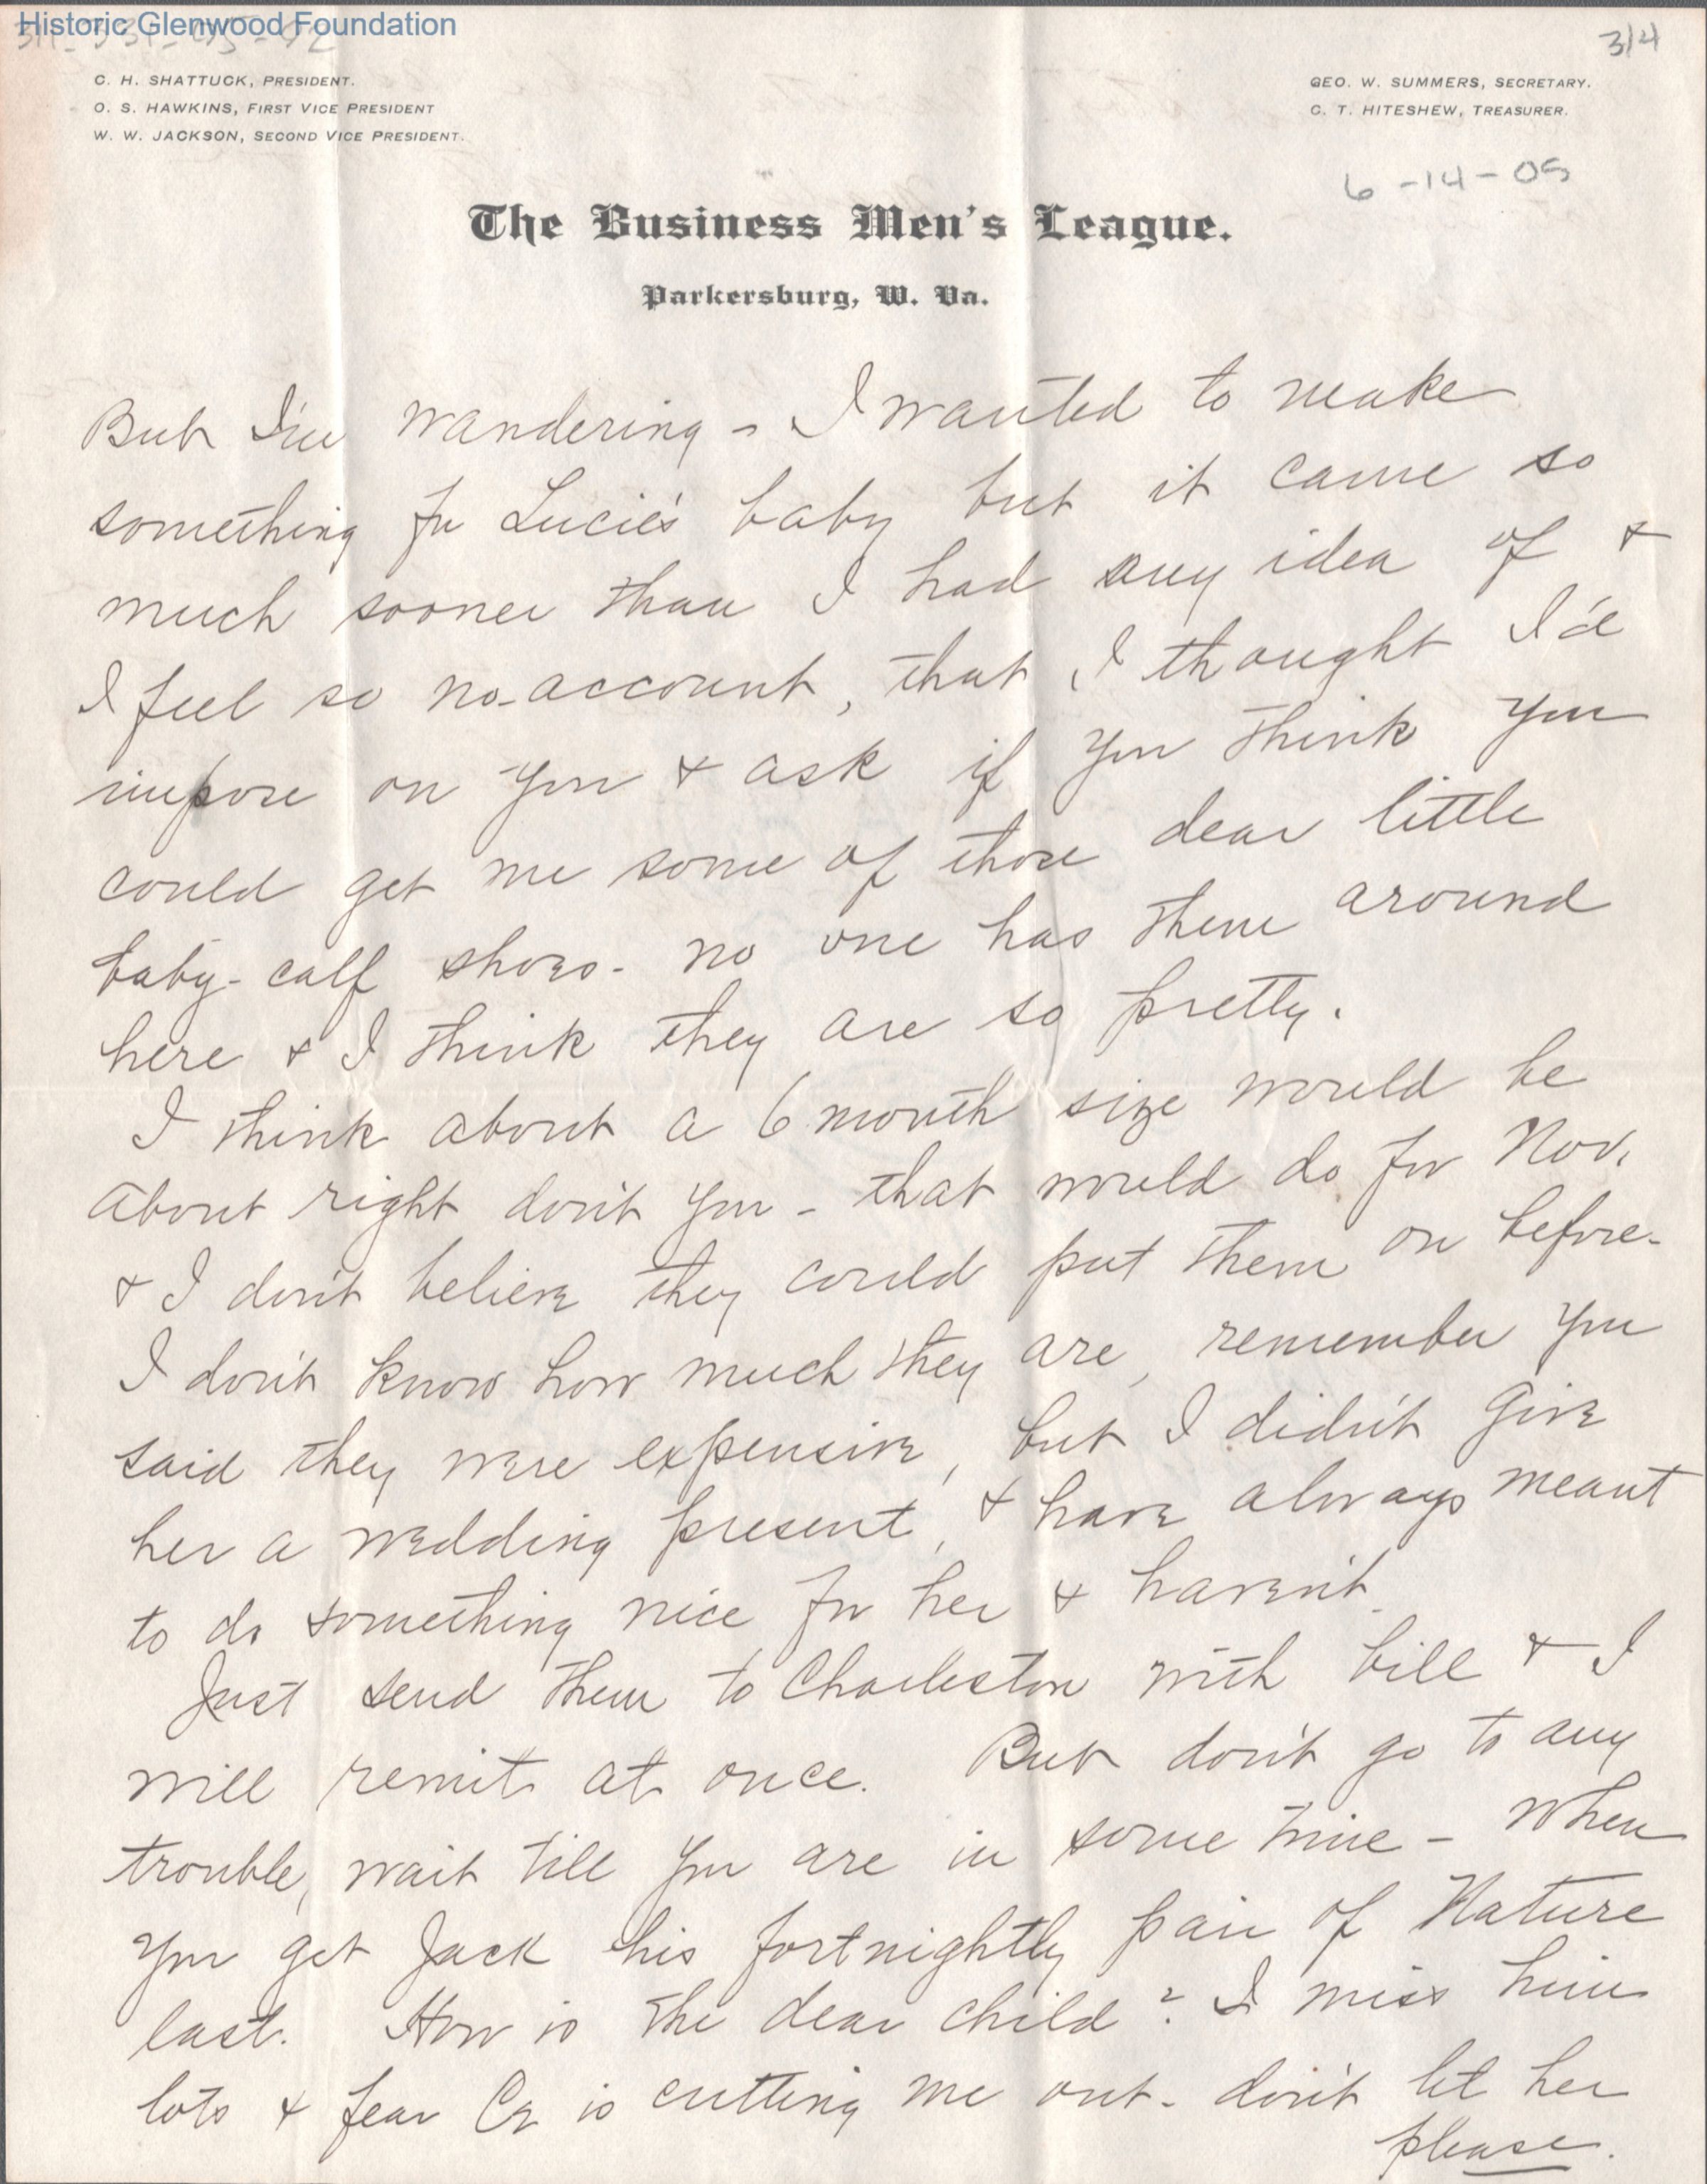 Historic Glenwood Foundation
3/4
C. H. SHATTUCK, PRESIDENT.
O. S. HAWKINS, FIRST VICE PRESIDENT
W. W. JACKSON, SECOND VICE PRESIDENT.
GEO. W. SUMMERS, SECRETARY.
C. T. HITESHEW, TREASURER.
6-14-05
The Business Men's League.
Parkersburg, W. Va.
But I'm wandering - I wanted to make
something for Lucie's baby but it came so
much sooner than I had any idea of &
I feel so no-account, that I thought I'd
impose on you & ask if you think you
could get me some of those dear little
baby-calf shoes - no one has them around
here & I think they are so pretty.
I think about a 6 month size would be
about right don't you - that would do for Nov.
& I don't believe they could put them on before -
I don't know how much they are, remember you
said they were expensive, but I didn't give
her a wedding present, & have always meant
to do something nice for her & haven't.
Just send them to Charleston with bill & I
will remit at once. But don't go to any
trouble, wait till you are in some time - when
you get Jack his fortnightly pair of Nature
last. How is the dear child? I miss him
lots & fear is cutting me out - don't let her
please.